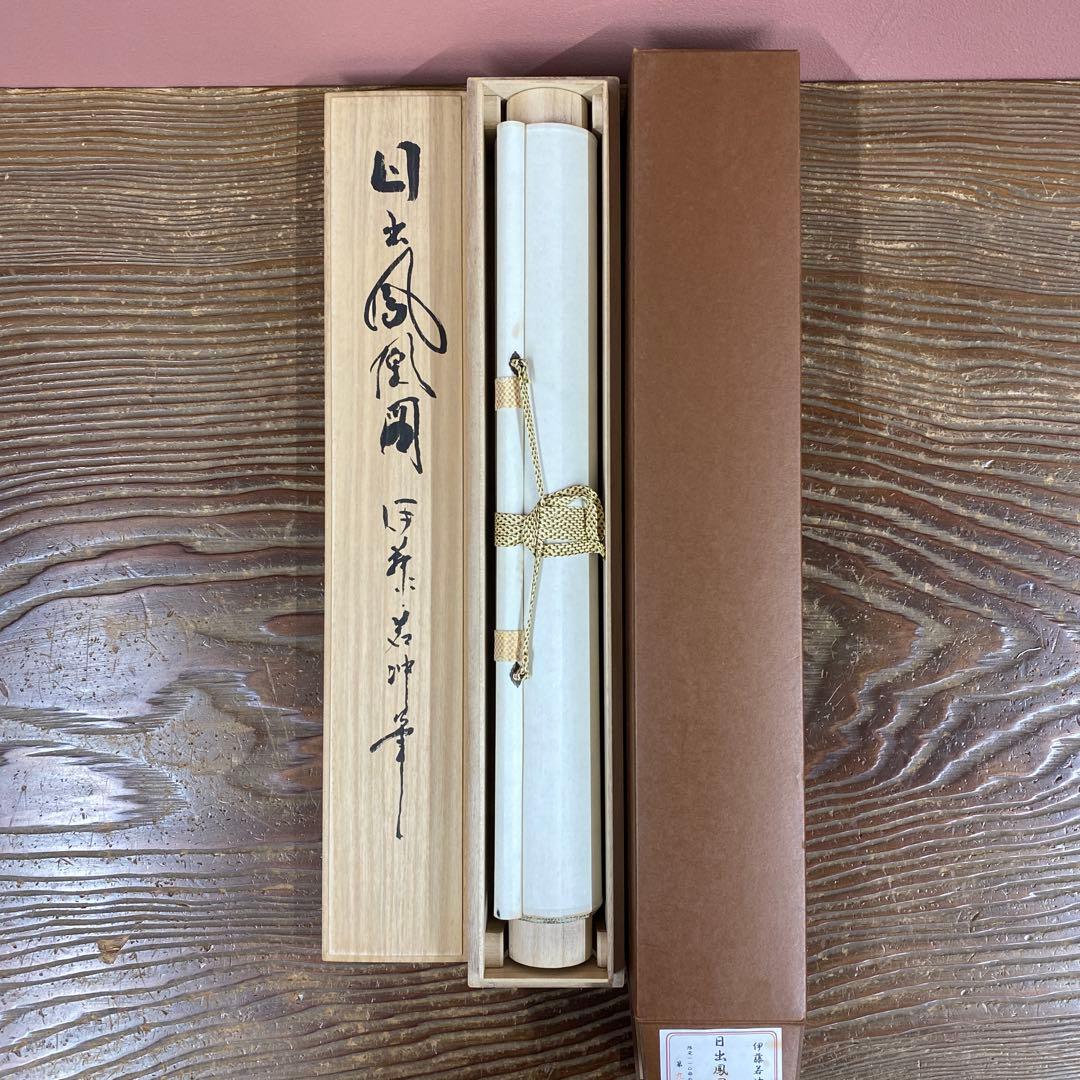 日出鳳凰図 伊藤若冲筆
伊藤若
日出鳳
限定一二〇
第